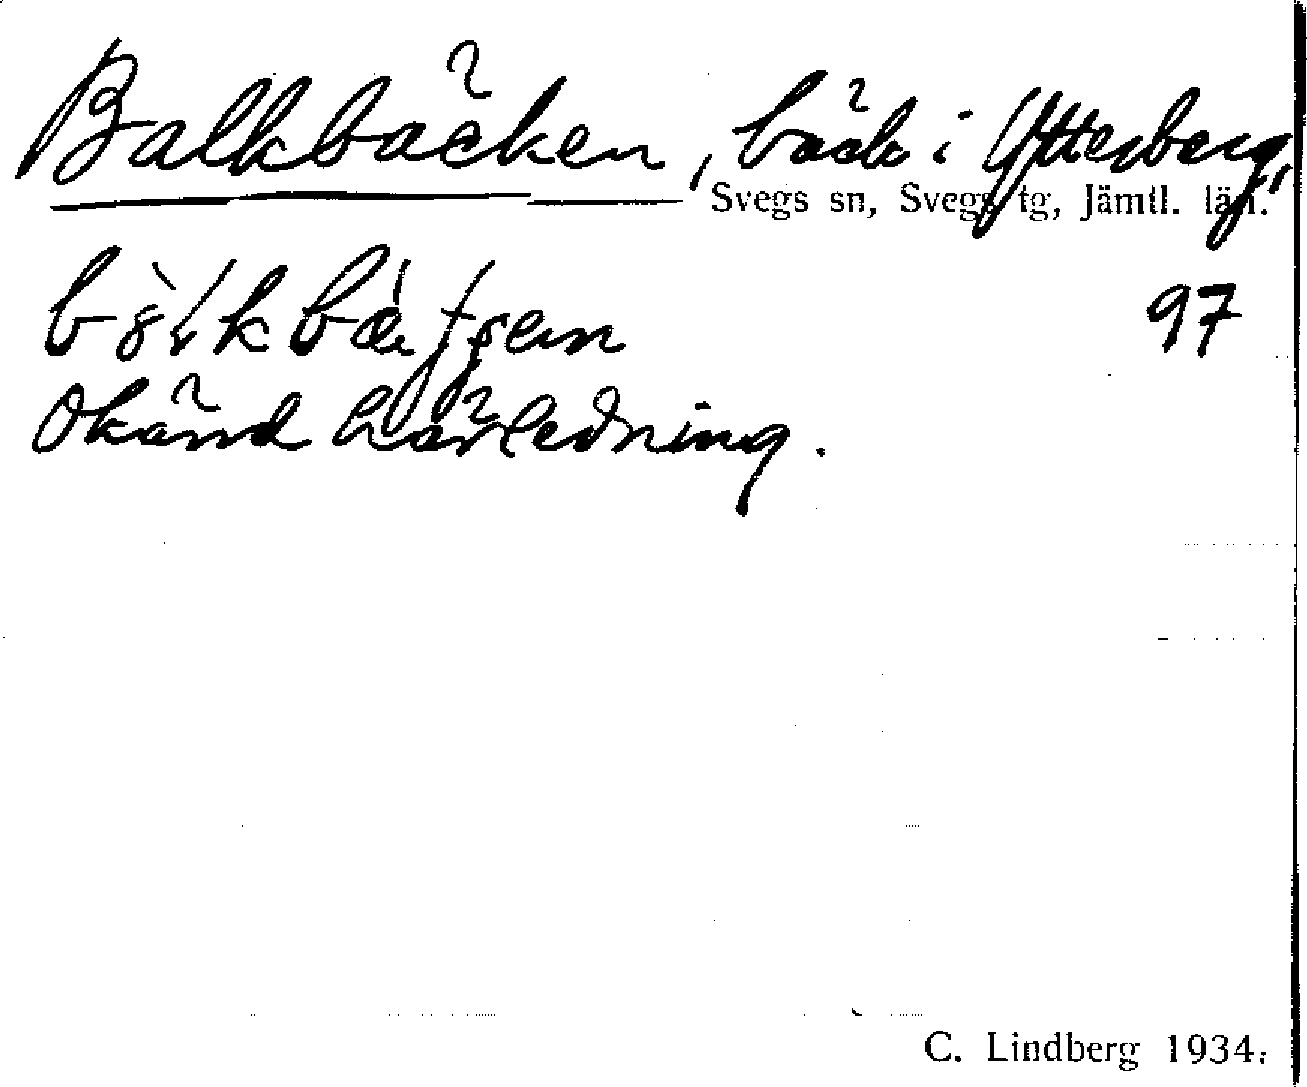 Balkbäcken, bäck i Ytterberg,
Svegs sn, Svegs tg, Jämtl. län.
97
Okänd härledning.
C. Lindberg 1934.